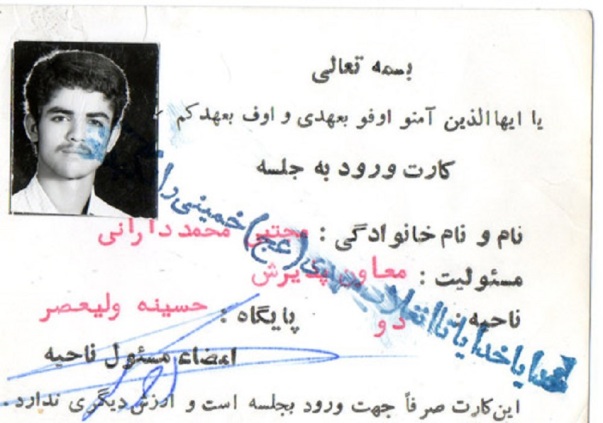 بسمه تعالی
یا ایهاالذین آمنو اوفو بعهدی و اوف بعهدکم
کارت ورود به جلسه
نام و نام خانوادگی : مجتبی محمد دارانی
مسئولیت : معاون پذیرش
ناحیه : دو پایگاه : حسینه ولیعصر
امضاء مسئول ناحیه
این کارت صرفاً جهت ورود بجلسه است و ارزش دیگری ندارد .
خدایا خدایا تا انقلاب مهدی (عج) خمینی را